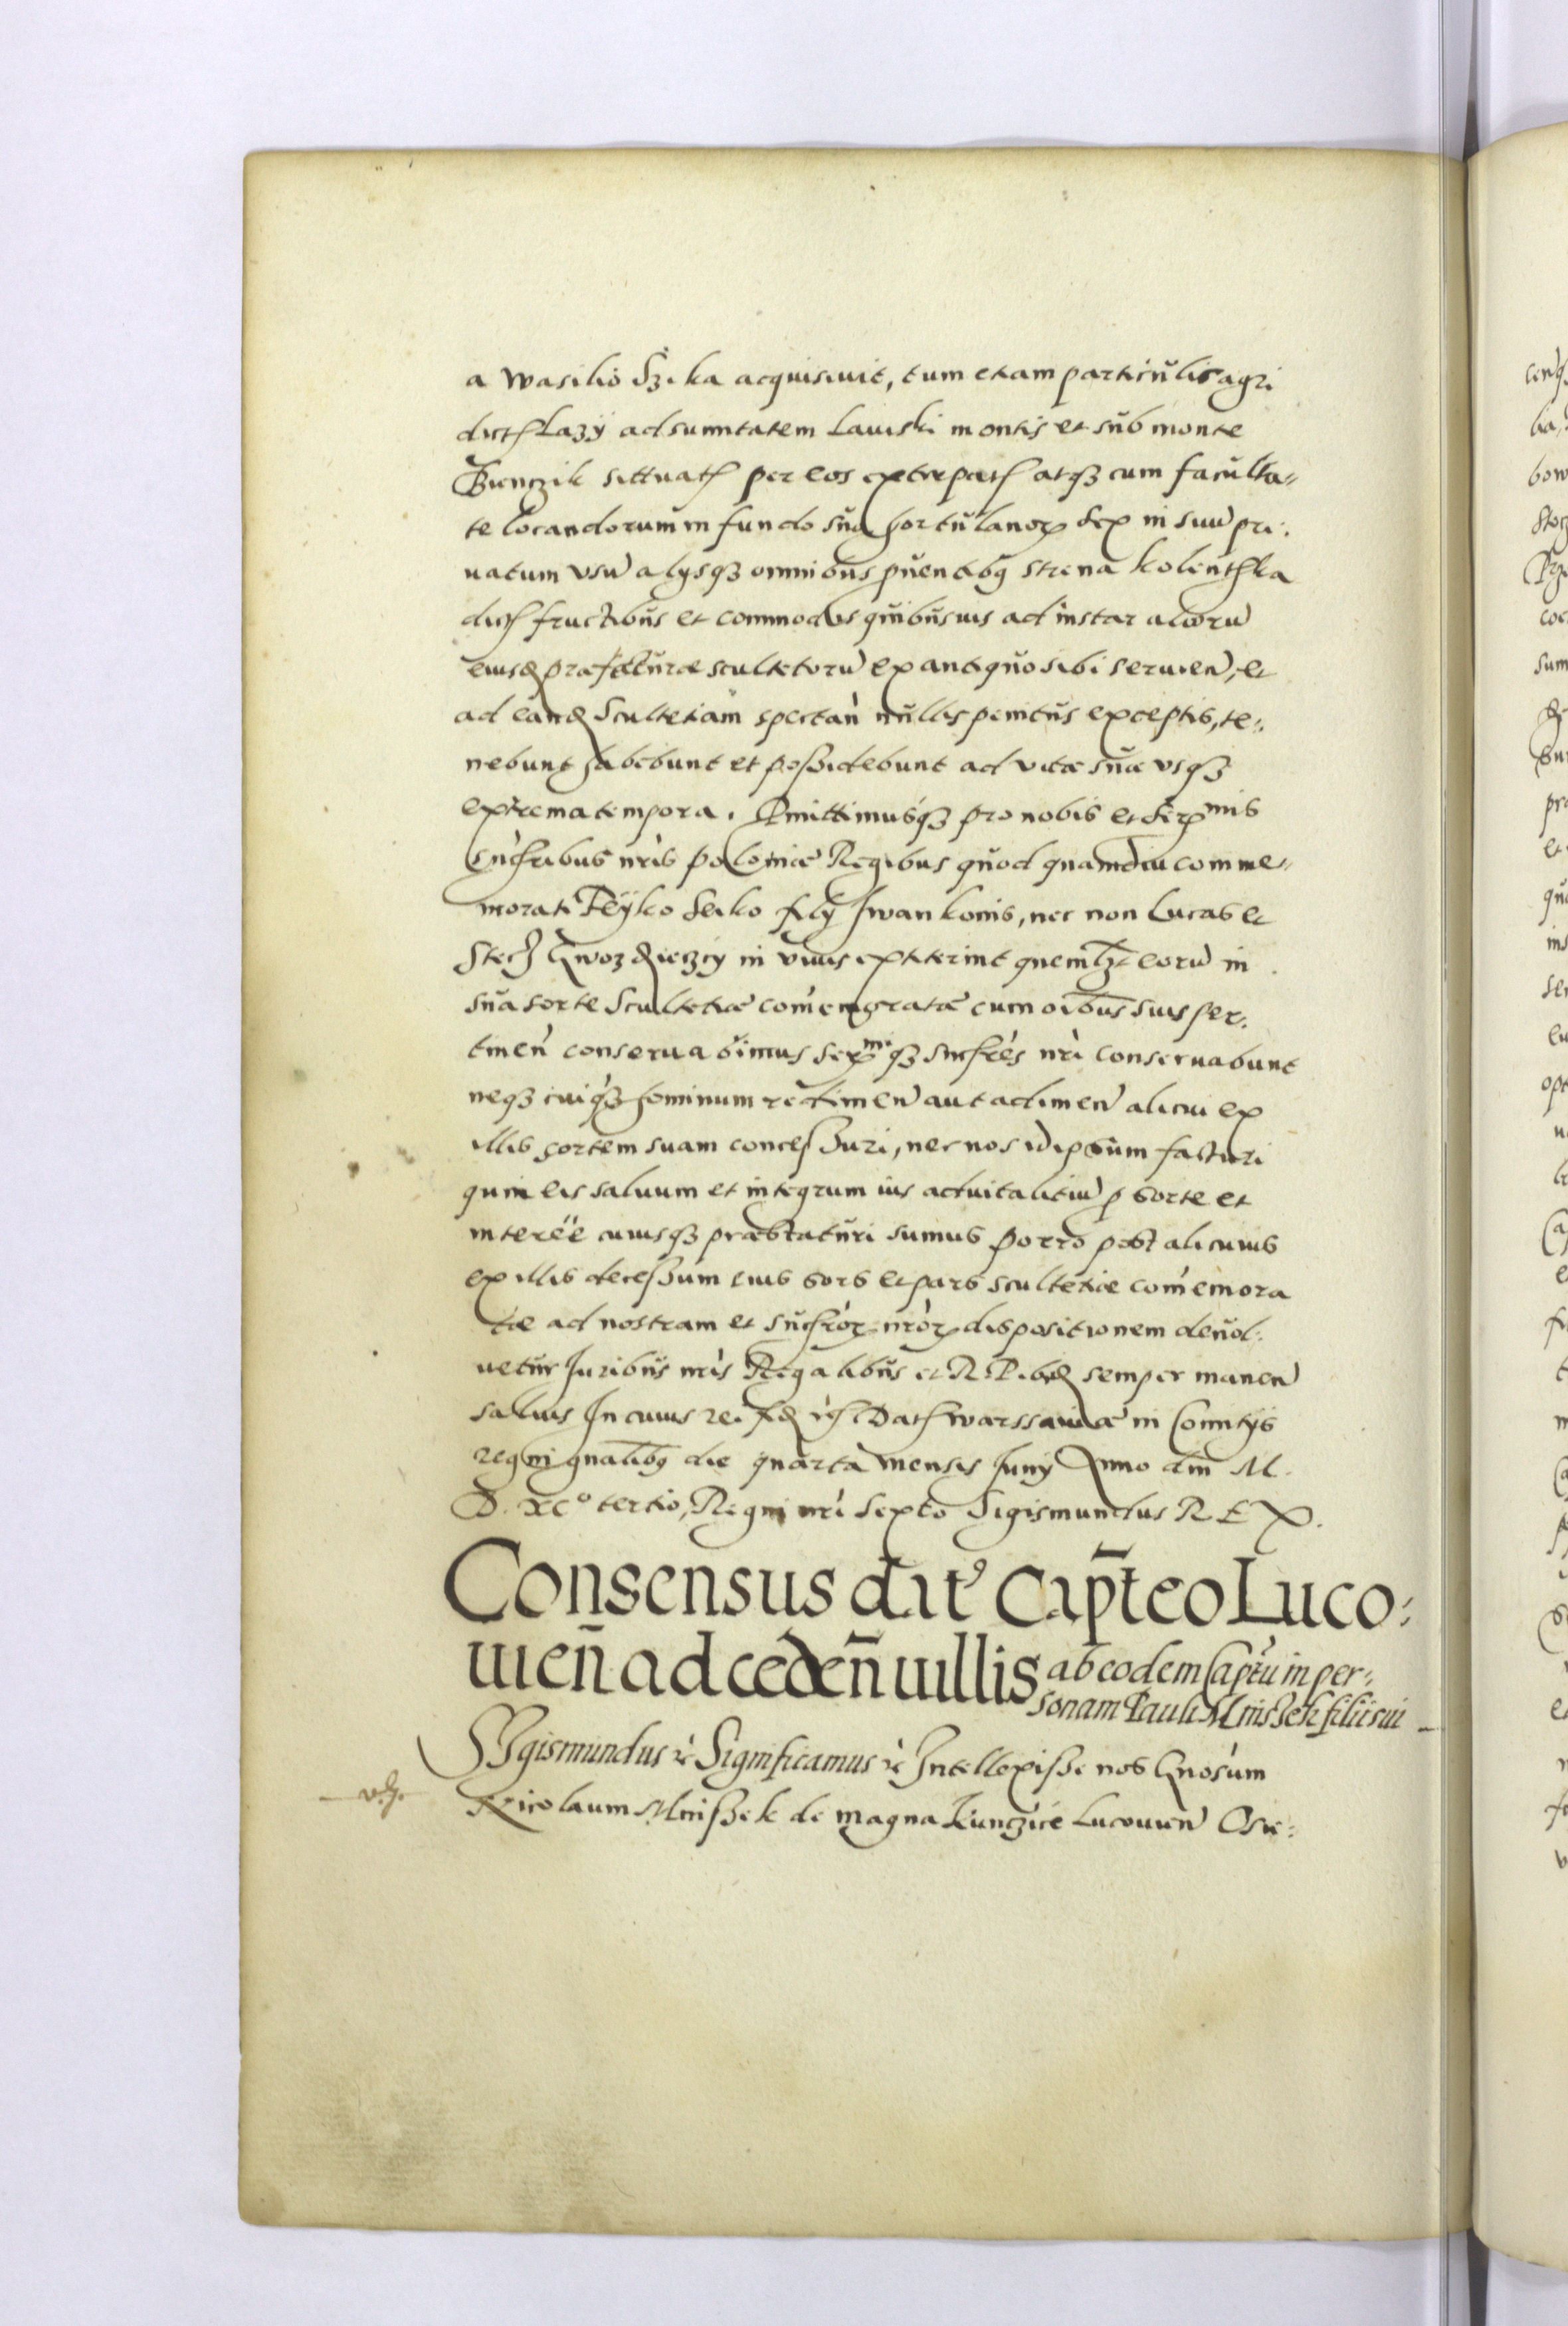 a Wasilio Szika acquisiuit, tum etiam particulis agri
dict Lazÿ ad sumitatem Lauiski montis et sub monte
Bienczik sittuat per eos extirpat atq3 cum faculta-
te locandorum in fundo suo hortulanor sex in suu pri:
uatum usu alÿsq3 omnibus puentibq strena kolenska
dict fructibus et commodis quibusuis ad instar alioru
eiusd præfecturæ scultetoru ex antiquo sibi seruien, et
ad eand Scultetiam spectan nullis penitus exceptis, te:
nebunt habebunt et possidebunt ad vitæ suæ usq3
extrema tempora. Pmittimusq3 pro nobis et Serx mis
Sucsribus nris Poloniæ Regibus quod quamdiu comme-
morati Feÿko Seiko filÿ Iwankonis, nec non Lucas et
Stech Gwozdzieczcy in viuis extiterint quemlzt eoru in
sua sorte Scultetiæ comemoratæ cum oibus suis per:
tinen conseruabimus serx miq3 sucsres nri conseruabunt
neq3 cuiq3 hominum redimen aut adimen alicui ex
illis sortem suam concessuri, nec nos id ipsum facturi
quin eis saluum et integrum ius aduitalitiu p sorte et
interee cuiusq3 præstaturi sumus porro post alicuius
ex illis decessum eius sors et pars scultetiæ comemora
tæ ad nostram et sucsror nror dispositionem deuol:
uetur Iuribus nris Regalibus et R P ibid semper manen
saluis In cuius rei fid rc Dat Warssauiæ in Comitÿs
regni gnalibq die quarta mensis Iunÿ Anno dni M.
D. XCo tertio, Regni nri Sexto Sigismundus R E X.
Consensus dat' Capteo Luco:
uien ad ceden uillis ab eodem Captu in per:
sonam Pauli Mniszek filii sui
Sÿgismundus rc Significamus rc Intellexisse nos Gnosum
Nicolaum Mniszek de magna Kunczice Lucouien Osie: